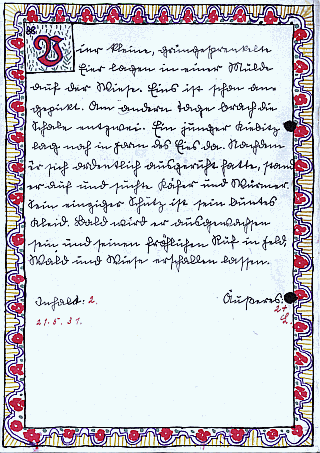 Vier kleine, grüngesprenkelte
Eier lagen in einer Mulde
auf der Wiese. Eins ist schon an-
gepickt. Am andern Tage brach die
Schale entzwei. Ein junger Kiebitz
lag noch in Form des Eis da. Nachdem
er sich ordentlich ausgeruht hatte, stand
er auf und suchte Käfer und Würmer.
Sein einziger Schutz ist sein buntes
Kleid. Bald wird er ausgewachsen
sein und seinen fröhlichen Ruf in Feld,
Wald und Wiese erschallen lassen.
Inhalt: 2. Äußeres:
2+
21.5.31. L.